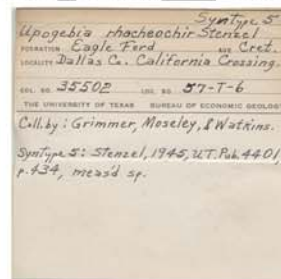 Syntype 5
Upogebia rhacheochir Stenzel
FORMATION Eagle Ford AGE Cret.
LOCALITY Dallas Co. California Crossing.
COL. NO. 35502 LOC. NO. 57-T-6
THE UNIVERSITY OF TEXAS BUREAU OF ECONOMIC GEOLOGY
Coll. by: Grimmer, Moseley, & Watkins.
Syntype 5: Stenzel, 1945, U.T. Pub. 4401,
p. 434, meas'd sp.